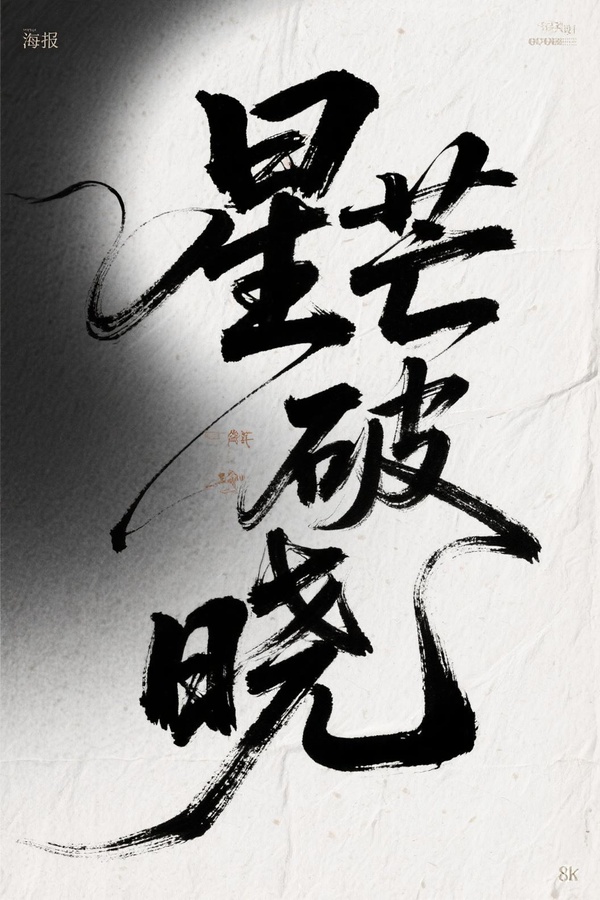 海报
星芒
破
晓
8K